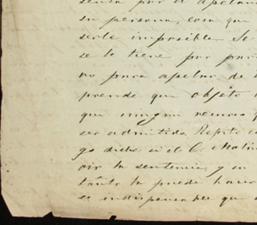 tencia por el apelan
su persona, cosa que
serle imposible. Se
se lo tiene por par
no para apelar de
prende que objeto
que ningun recurso q
ser admitido. Repito
go dicho en el C.
oir la sentencia, y
tanto la puede hacer
es indispensable que